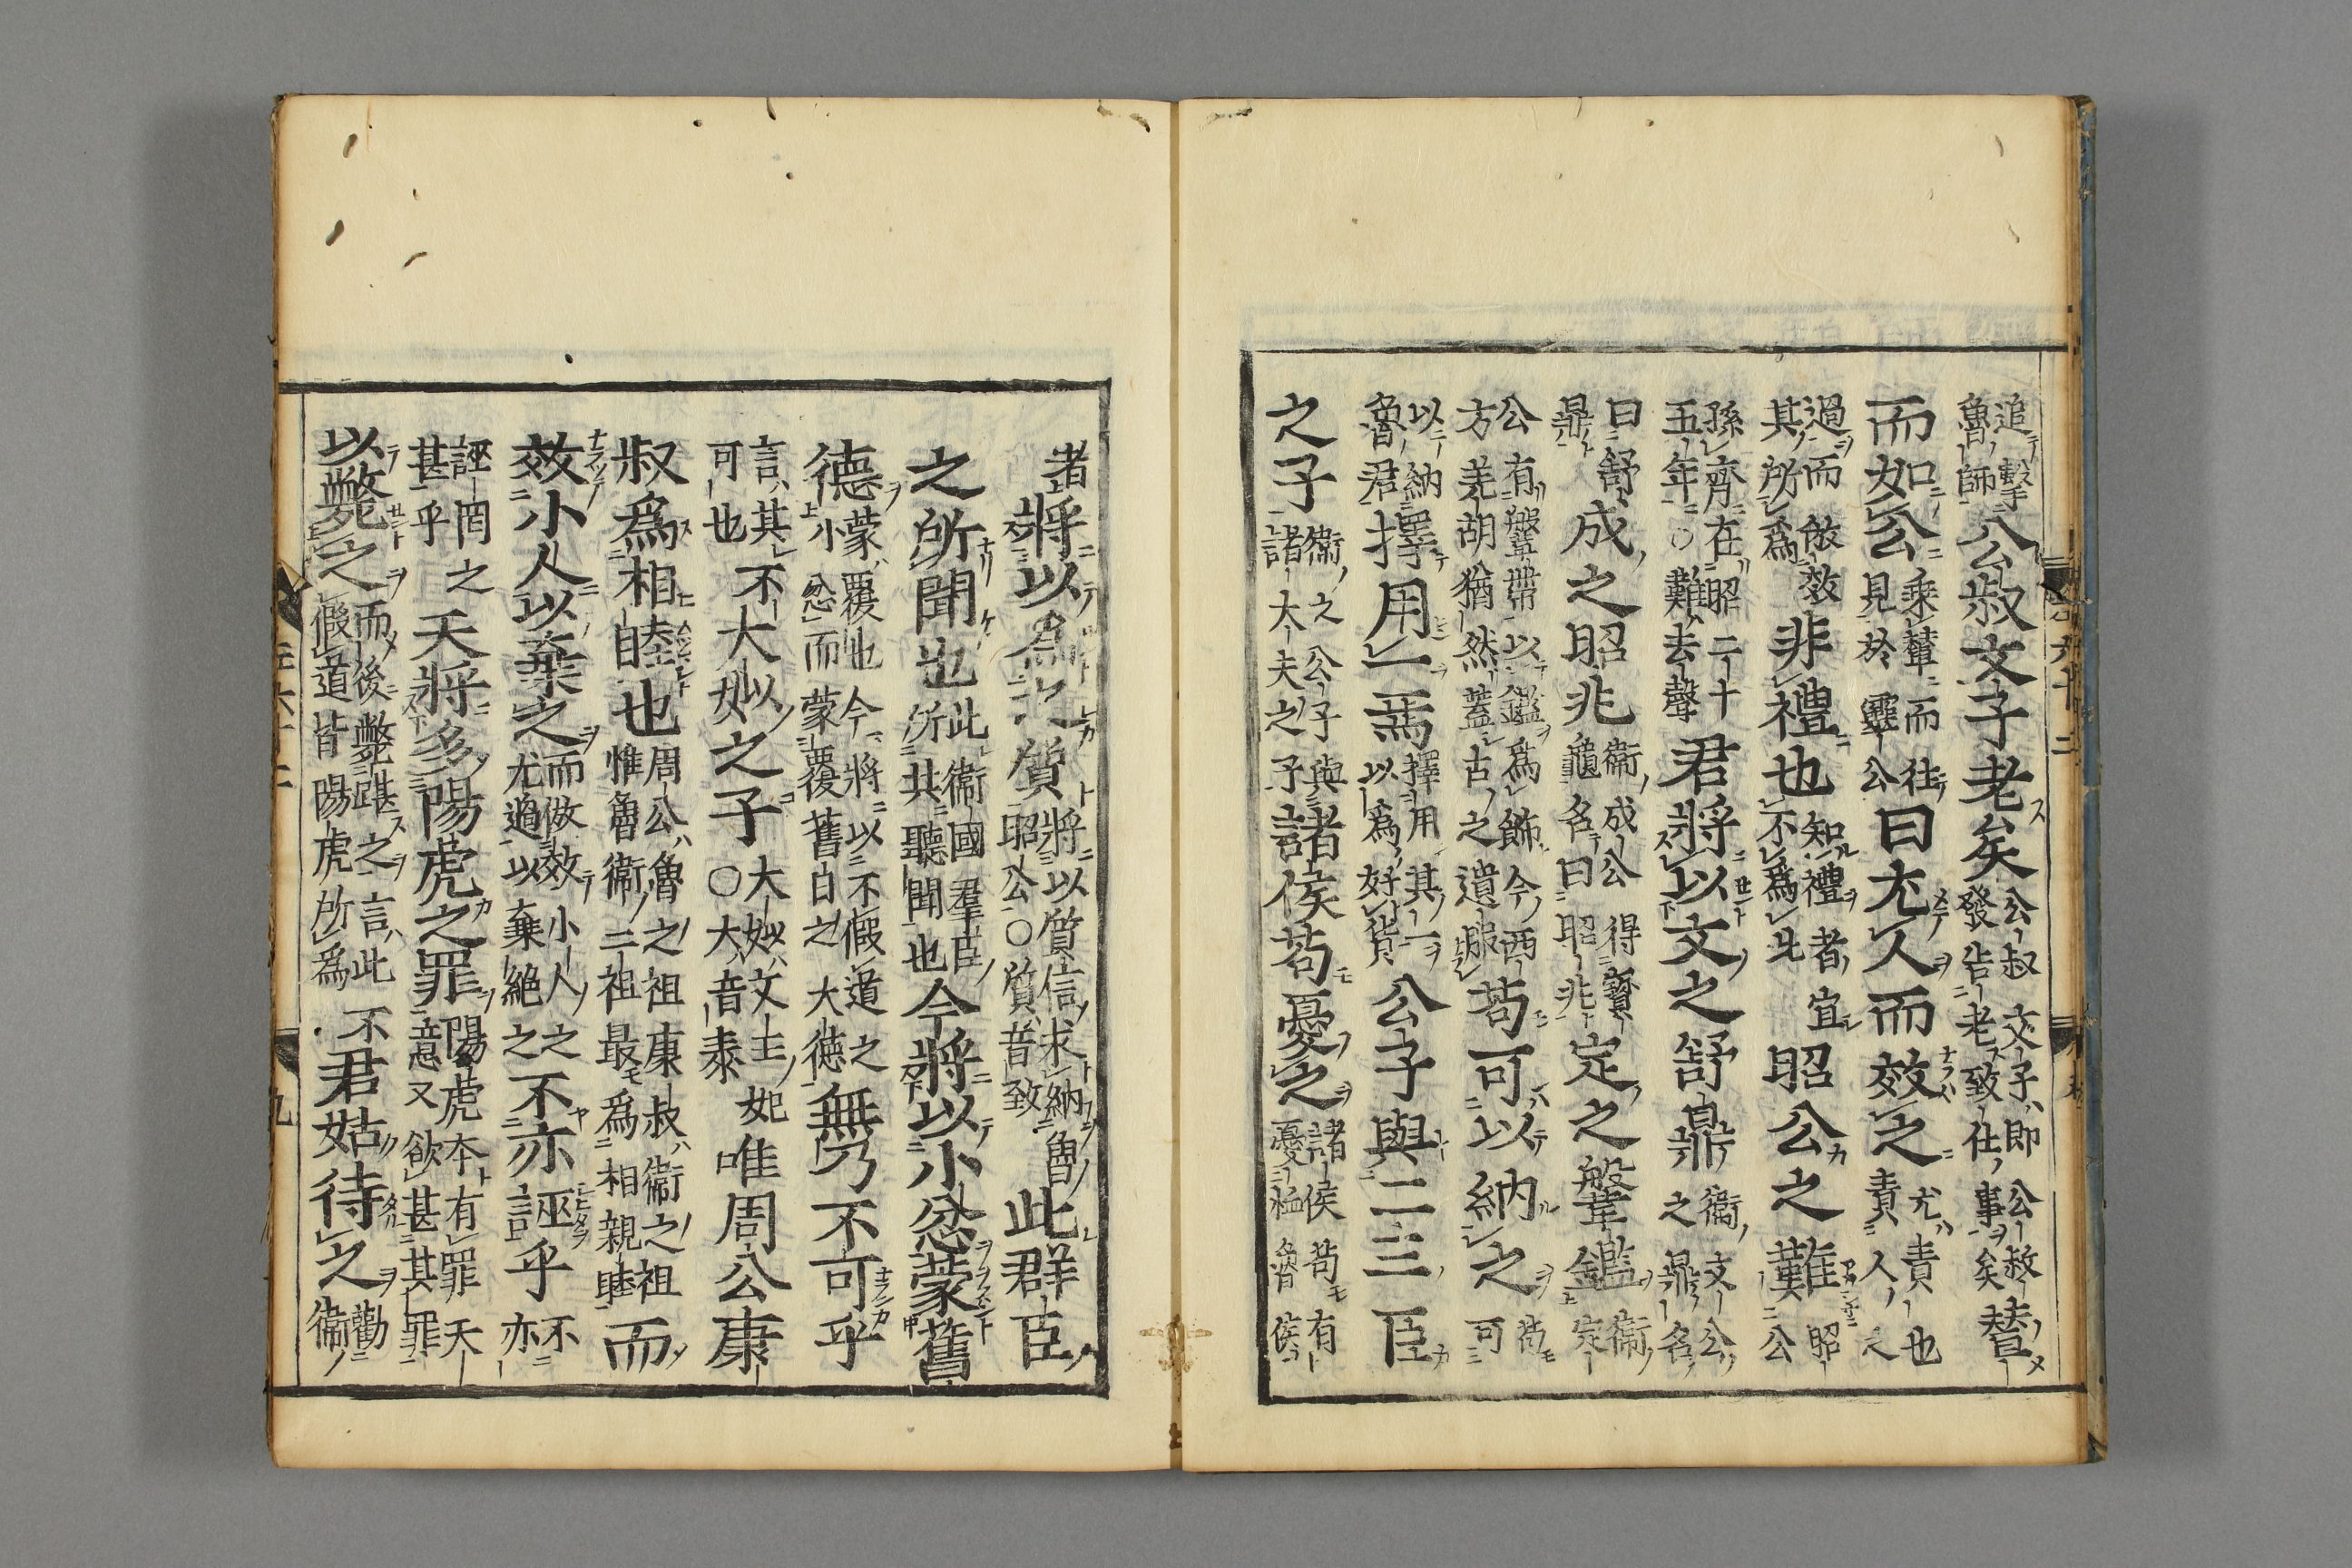 追擊魯師公叔文子老矣公叔文子即公叔發告老致仕事矣輦
而如公乘輦而往見於靈公曰尤人而效之尤責也責人之
過而倣效其所爲非禮也知禮者宜不爲此昭公之難昭公
孫齊在昭二十五年○難去聲君將以文之舒鼎衛文公之鼎名
曰舒鼎成之昭兆衛成公得寶龜名曰昭兆定之鞶鑑衛定
公有鞶帶以鑑爲飾今西方羌胡猶然蓋古之遺服苟可以納之苟可
以納魯君擇用一焉擇用其一以爲好貨公子與二三臣
之子衛之公子與諸大夫之子諸侯苟憂之諸侯苟有憂恤魯侯
者將以爲之質將以質信求納魯昭公○質音致此群臣
之所聞也此衛國羣臣所共聽聞也今將以小忿蒙舊
德蒙覆也今將以不假道之小忿而蒙覆舊日之大德無乃不可乎
言其不可也大姒之子大姒文王妃○大音泰唯周公康
叔爲相睦也周公魯之祖康叔衛之祖惟魯衛二祖最爲相親睦而
效小人以棄之而倣效小人之尤過以棄絕之不亦誣乎不亦
誣罔之甚乎天將多陽虎之罪陽虎本有罪天意又欲甚其罪
以斃之而後斃踣之言此不假道皆陽虎所爲君姑待之勸衛